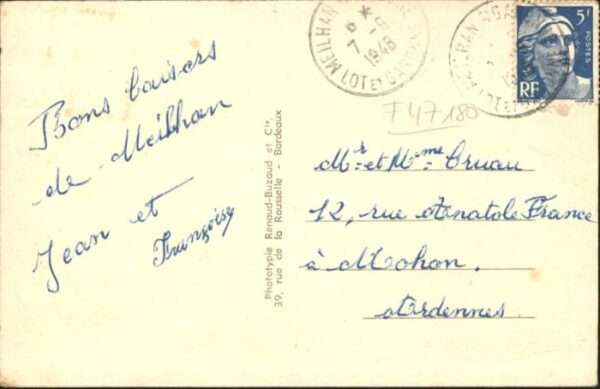 Bons baisers
de Meilhan
Jean et
Françoise
Phototypie Renaud-Buzaud et Cie.
39, rue de la Rousselle - Bordeaux
MEILHAN
6 *
7 - 9
1948
LOT ET GARONNE
5F
POSTES
RF
F47180
Mr et Mme Cruau
12, rue Anatole France
à Mohon.
Ardennes.